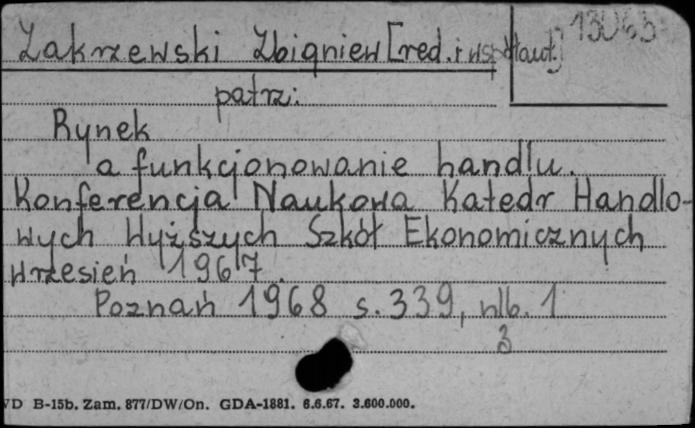 Zakrzewski Zbigniew [red. i współaut.]
13065
patrz:
Rynek
a funkcjonowanie handlu.
Konferencja Naukowa Katedr Handlo-
wych Wyższych Szkół Ekonomicznych
wrzesień 1967.
Poznań 1968 s. 339, nlb. 1
3
VD B-15b. Zam. 877/DW/On. GDA-1881. 6.6.67. 3.600.000.